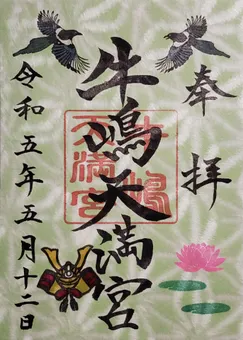 奉拝
牛嶋天満宮
牛嶋天満宮
令和五年五月十二日